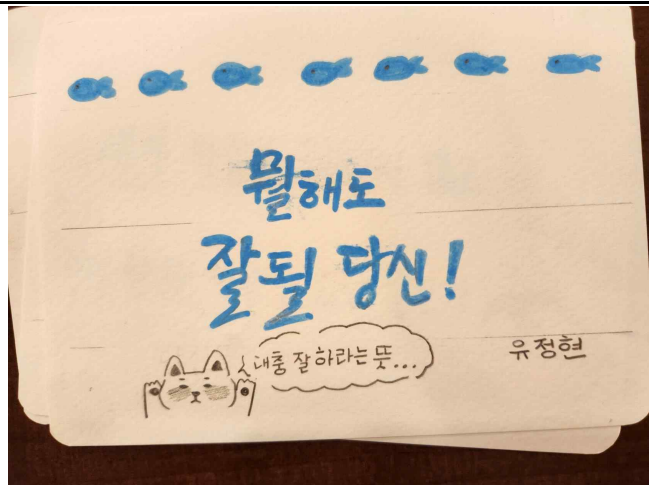 뭘해도
잘될 당신!
대충 잘하라는 뜻...
유정현